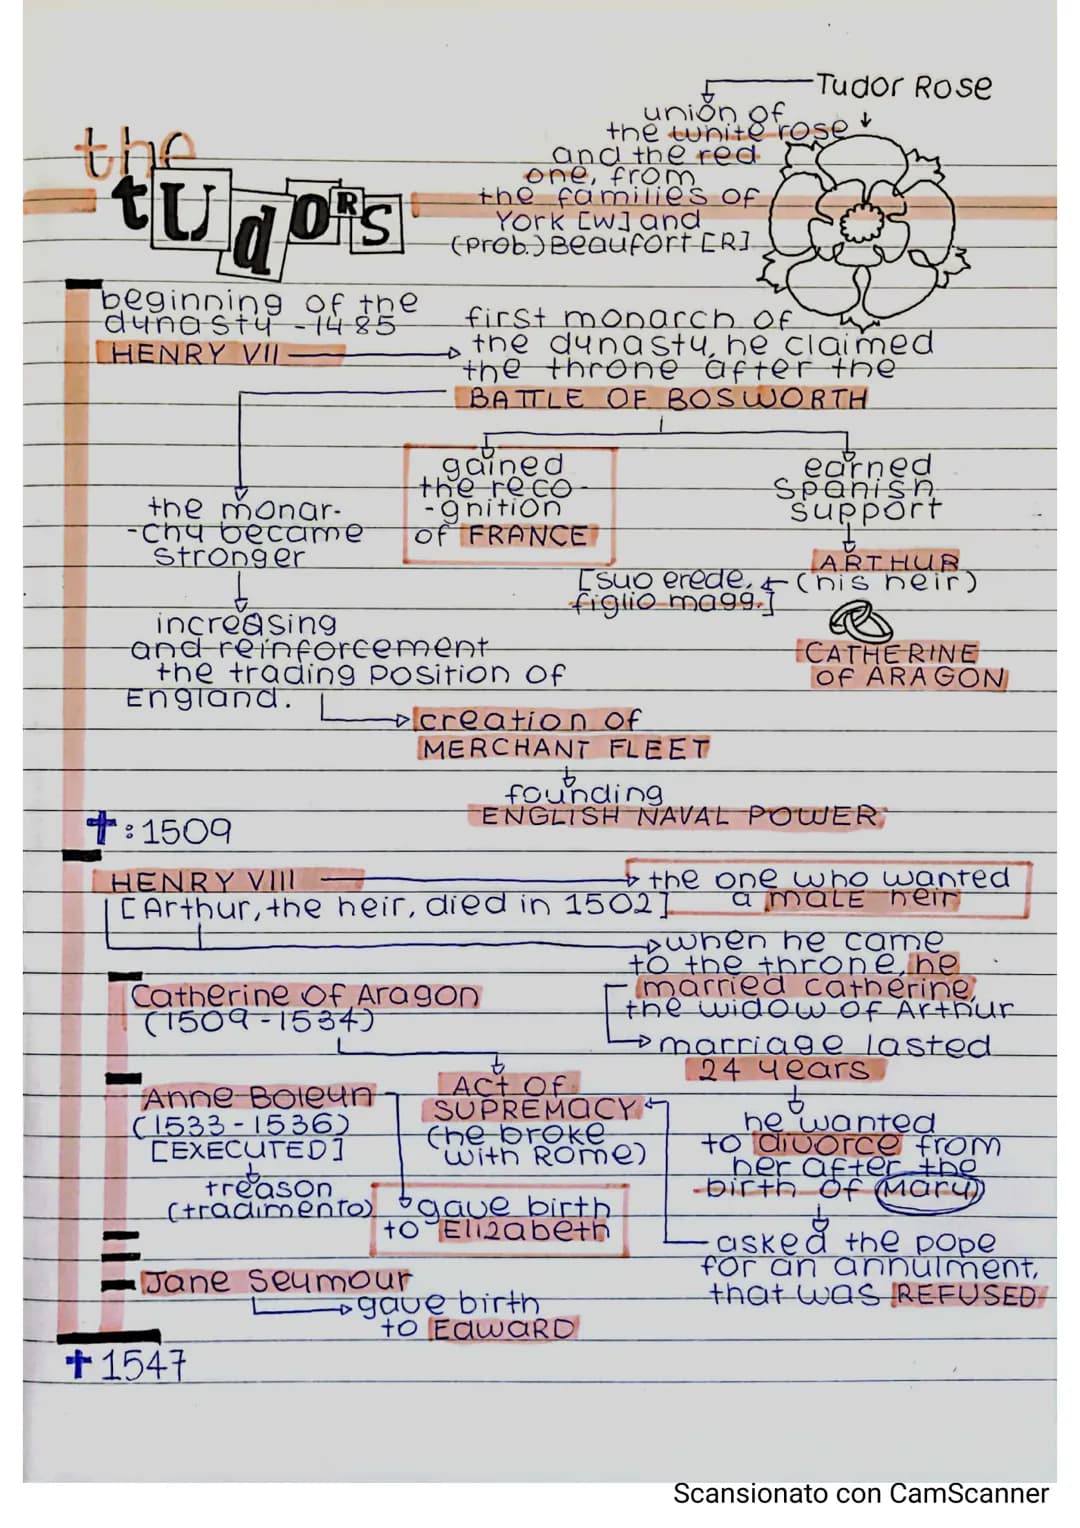 the
tudoRs
Tudor Rose
union of
the white rose
and the red
one, from
the families of
York [W] and
(prob.) Beaufort [R]
beginning of the
dynasty - 1485
HENRY VII
first monarch of
the dynasty, he claimed
the throne after the
BATTLE OF BOSWORTH
gained
the reco-
-gnition
of FRANCE
earned
Spanish
support
ARTHUR
(his heir)
[suo erede,
figlio magg.]
CATHERINE
of ARAGON
the monar-
-chy became
stronger
increasing
and reinforcement
the trading position of
England.
creation of
MERCHANT FLEET
founding
ENGLISH NAVAL POWER.
✝: 1509
HENRY VIII
the one who wanted
a MALE heir
[Arthur, the heir, died in 1502]
when he came
to the throne, he
married Catherine,
the widow of Arthur
marriage lasted
24 years
Catherine of Aragon
(1509 - 1534)
ACT OF
SUPREMACY
(he broke
with Rome)
he wanted
to divorce from
her after the
birth of Mary
asked the pope
for an annulment,
that was REFUSED
Anne Boleyn
(1533 - 1536)
[EXECUTED]
treason
(tradimento)
gave birth
to Elizabeth
Jane Seymour
gave birth
to EDWARD
✝ 1547
Scansionato con CamScanner